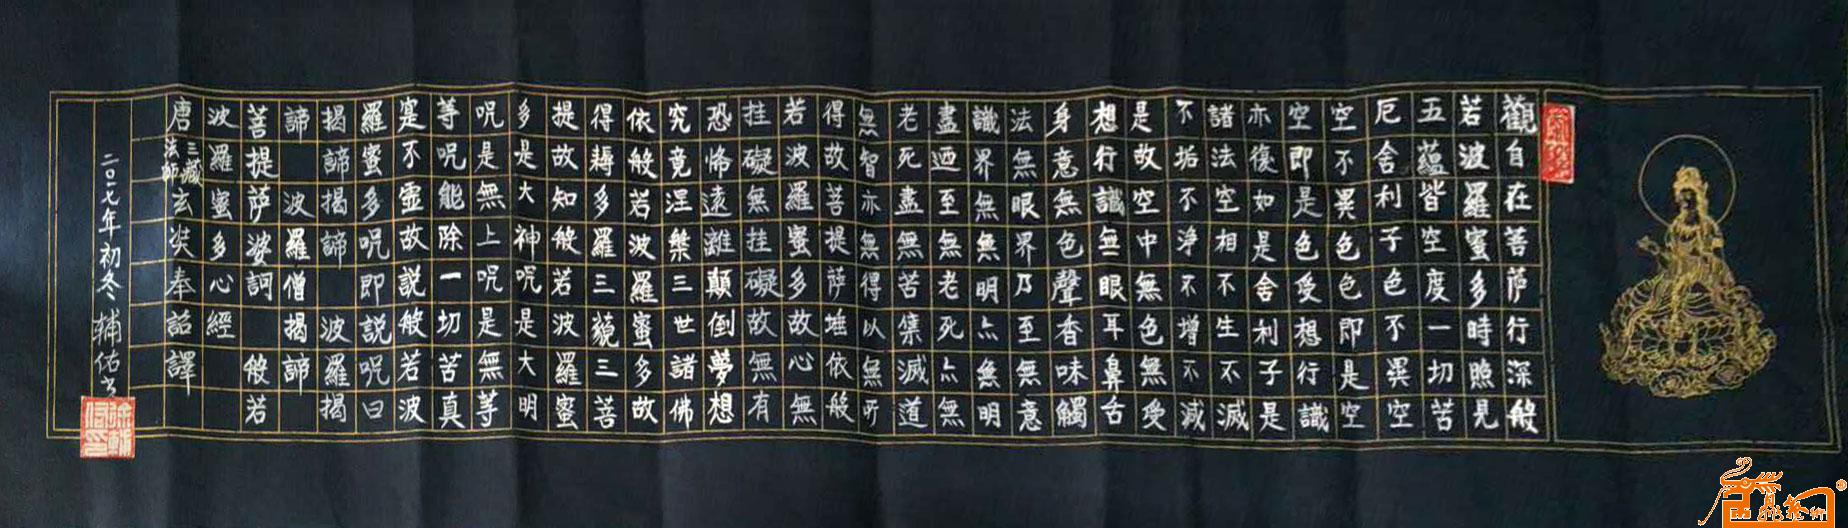 觀自在菩薩行深般
若波羅蜜多時照見
五蘊皆空度一切苦
厄舍利子色不異空
空不異色色即是空
空即是色受想行識
亦復如是舍利子是
諸法空相不生不滅
不垢不淨不增不減
是故空中無色無受
想行識無眼耳鼻舌
身意無色聲香味觸
法無眼界乃至無意
識界無無明亦無明
盡迺至無老死亦無
老死盡無苦集滅道
無智亦無得以無所
得故菩提薩埵依般
若波羅蜜多故心無
挂礙無挂礙故無有
恐怖遠離顛倒夢想
究竟涅槃三世諸佛
依般若波羅蜜多故
得耨多羅三藐三菩
提故知般若波羅蜜
多是大神呪是大明
呪是無上呪是無等
等呪能除一切苦真
寔不虛故說般若波
羅蜜多呪即說呪曰
揭諦揭諦 波羅揭
諦 波羅僧揭諦
菩提薩婆訶 般若
波羅蜜多心經
唐三藏法師玄奘奉詔譯
二〇一七年初冬 輔佑書